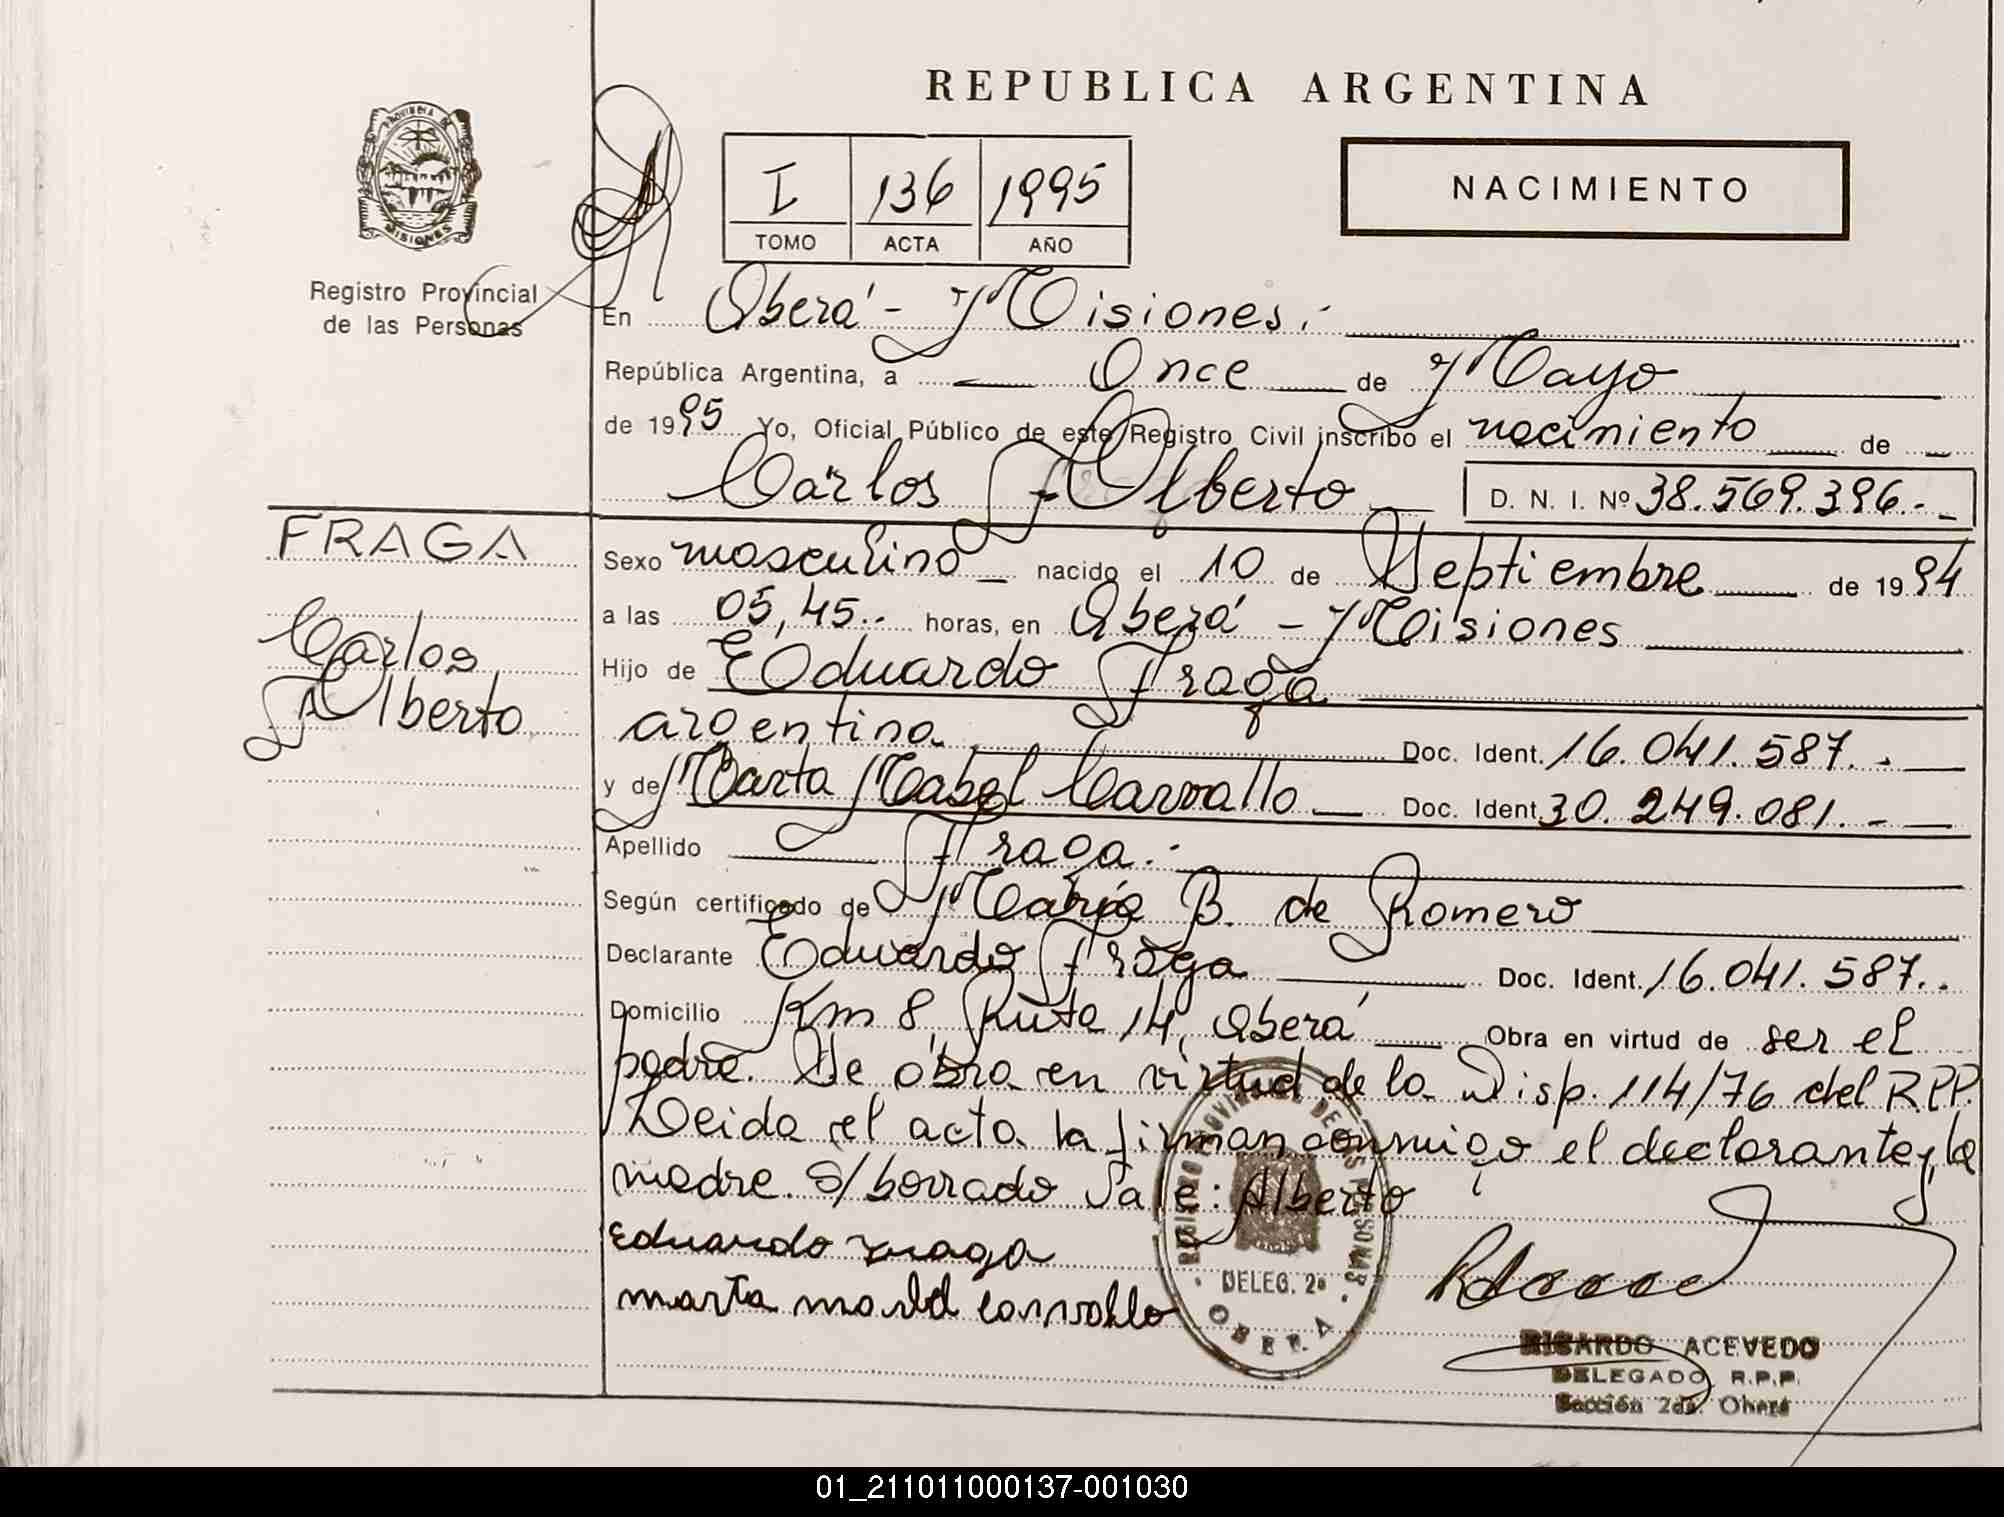 REPUBLICA ARGENTINA
PROVINCIA DE
MISIONES
Registro Provincial
de las Personas
I 136 1995
TOMO ACTA AÑO
NACIMIENTO
En Oberá - Misiones.-
República Argentina, a Once de Mayo
de 1995 Yo, Oficial Público de este Registro Civil inscribo el nacimiento de
Carlos Alberto D. N. I. Nº 38.569.396.-
FRAGA
Carlos
Alberto
Sexo masculino nacido el 10 de Septiembre de 1994
a las 05,45.. horas, en Oberá - Misiones
Hijo de Eduardo Fraga
argentino Doc. Ident. 16.041.587.-
y de Marta Mabel Carvallo Doc. Ident. 30.249.081.-
Apellido Fraga.-
Según certificado de María B. de Romero
Declarante Eduardo Fraga Doc. Ident. 16.041.587..
Domicilio Km 8, Ruta 14, Oberá Obra en virtud de ser el
padre. Se obra en virtud de la Disp. 114/76 del R.P.P.
Leida el acta la firman conmigo el declarante y la
madre. S/ borrado Vale: Alberto
Eduardo Fraga
marta Carvallo
REGISTRO PROVINCIAL DE LAS PERSONAS
DELEG. 2ª
OBERA
RICARDO ACEVEDO
DELEGADO R.P.P.
Sección 2da. Oberá
01_211011000137-001030